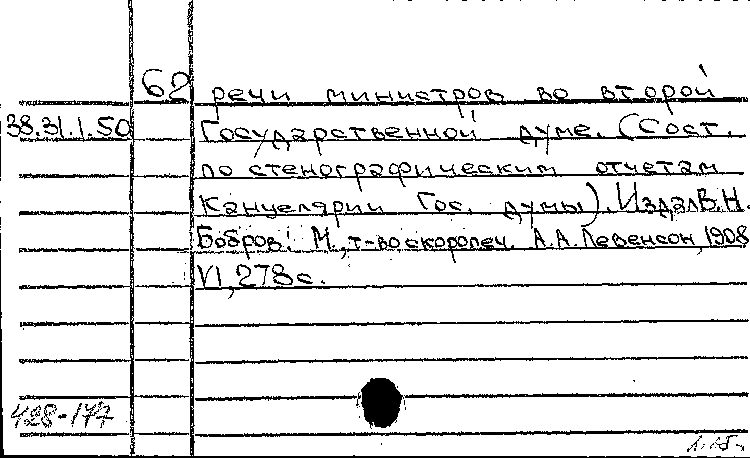 62 речи министров во второй
38.31.1.50 Государственной думе. (Сост.
по стенографическим отчетам
Канцелярии Гос. думы). Издал В.Н.
Бобров. М., т-во скоропеч. А.А. Левенсон, 1908
VI, 278 с.
428-177